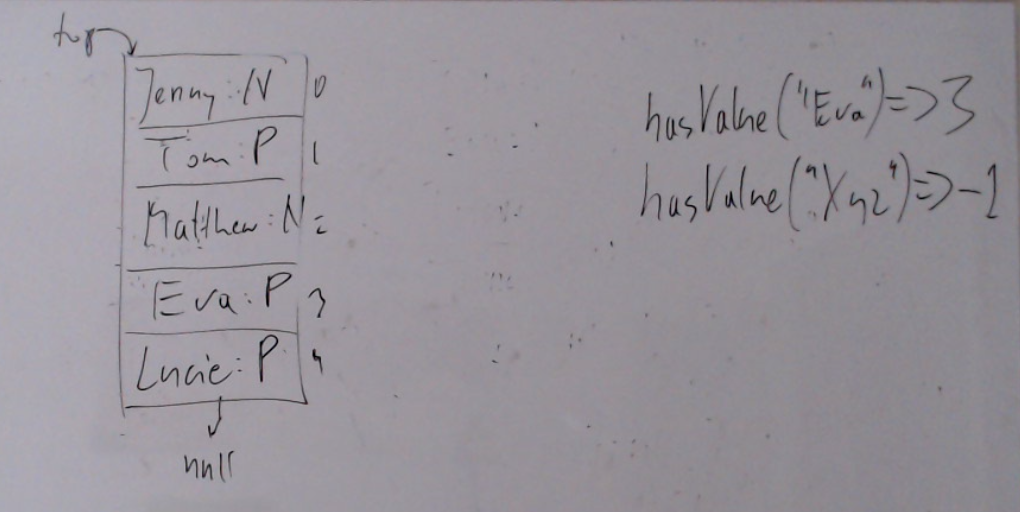 top
Jenny: N 0
Tom: P 1
Matthew: N 2
Eva: P 3
Lucie: P 4
null
hasValue("Eva") => 3
hasValue("Xyz") => -1